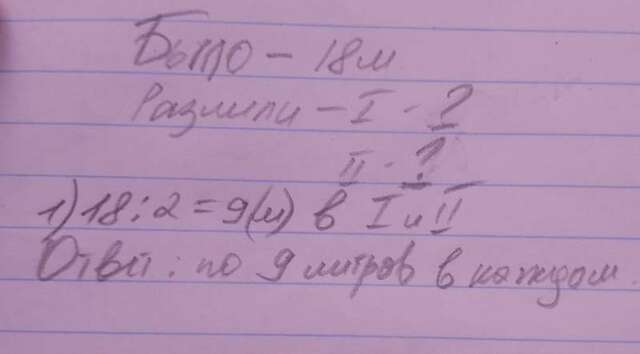 Было - 18л
Разлили - I - ?
II - ?
1) 18:2=9(л) в I и II
Ответ: по 9 литров в каждом.